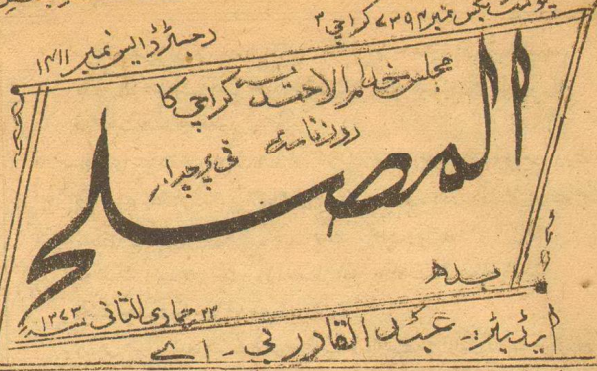 پوسٹ بکس نمبر ۷۳۹۴ کراچی ۳
رجسٹرڈ ایس نمبر ۱۴۱۱
مجلس خدام الاحمدیہ کراچی کا
روزنامہ
فی پرچہ ۱ر
المصلح
بدھ
۲۳ جمادی الثانی ۱۳۷۳
ایڈیٹر:۔ عبد القادر بی۔ اے